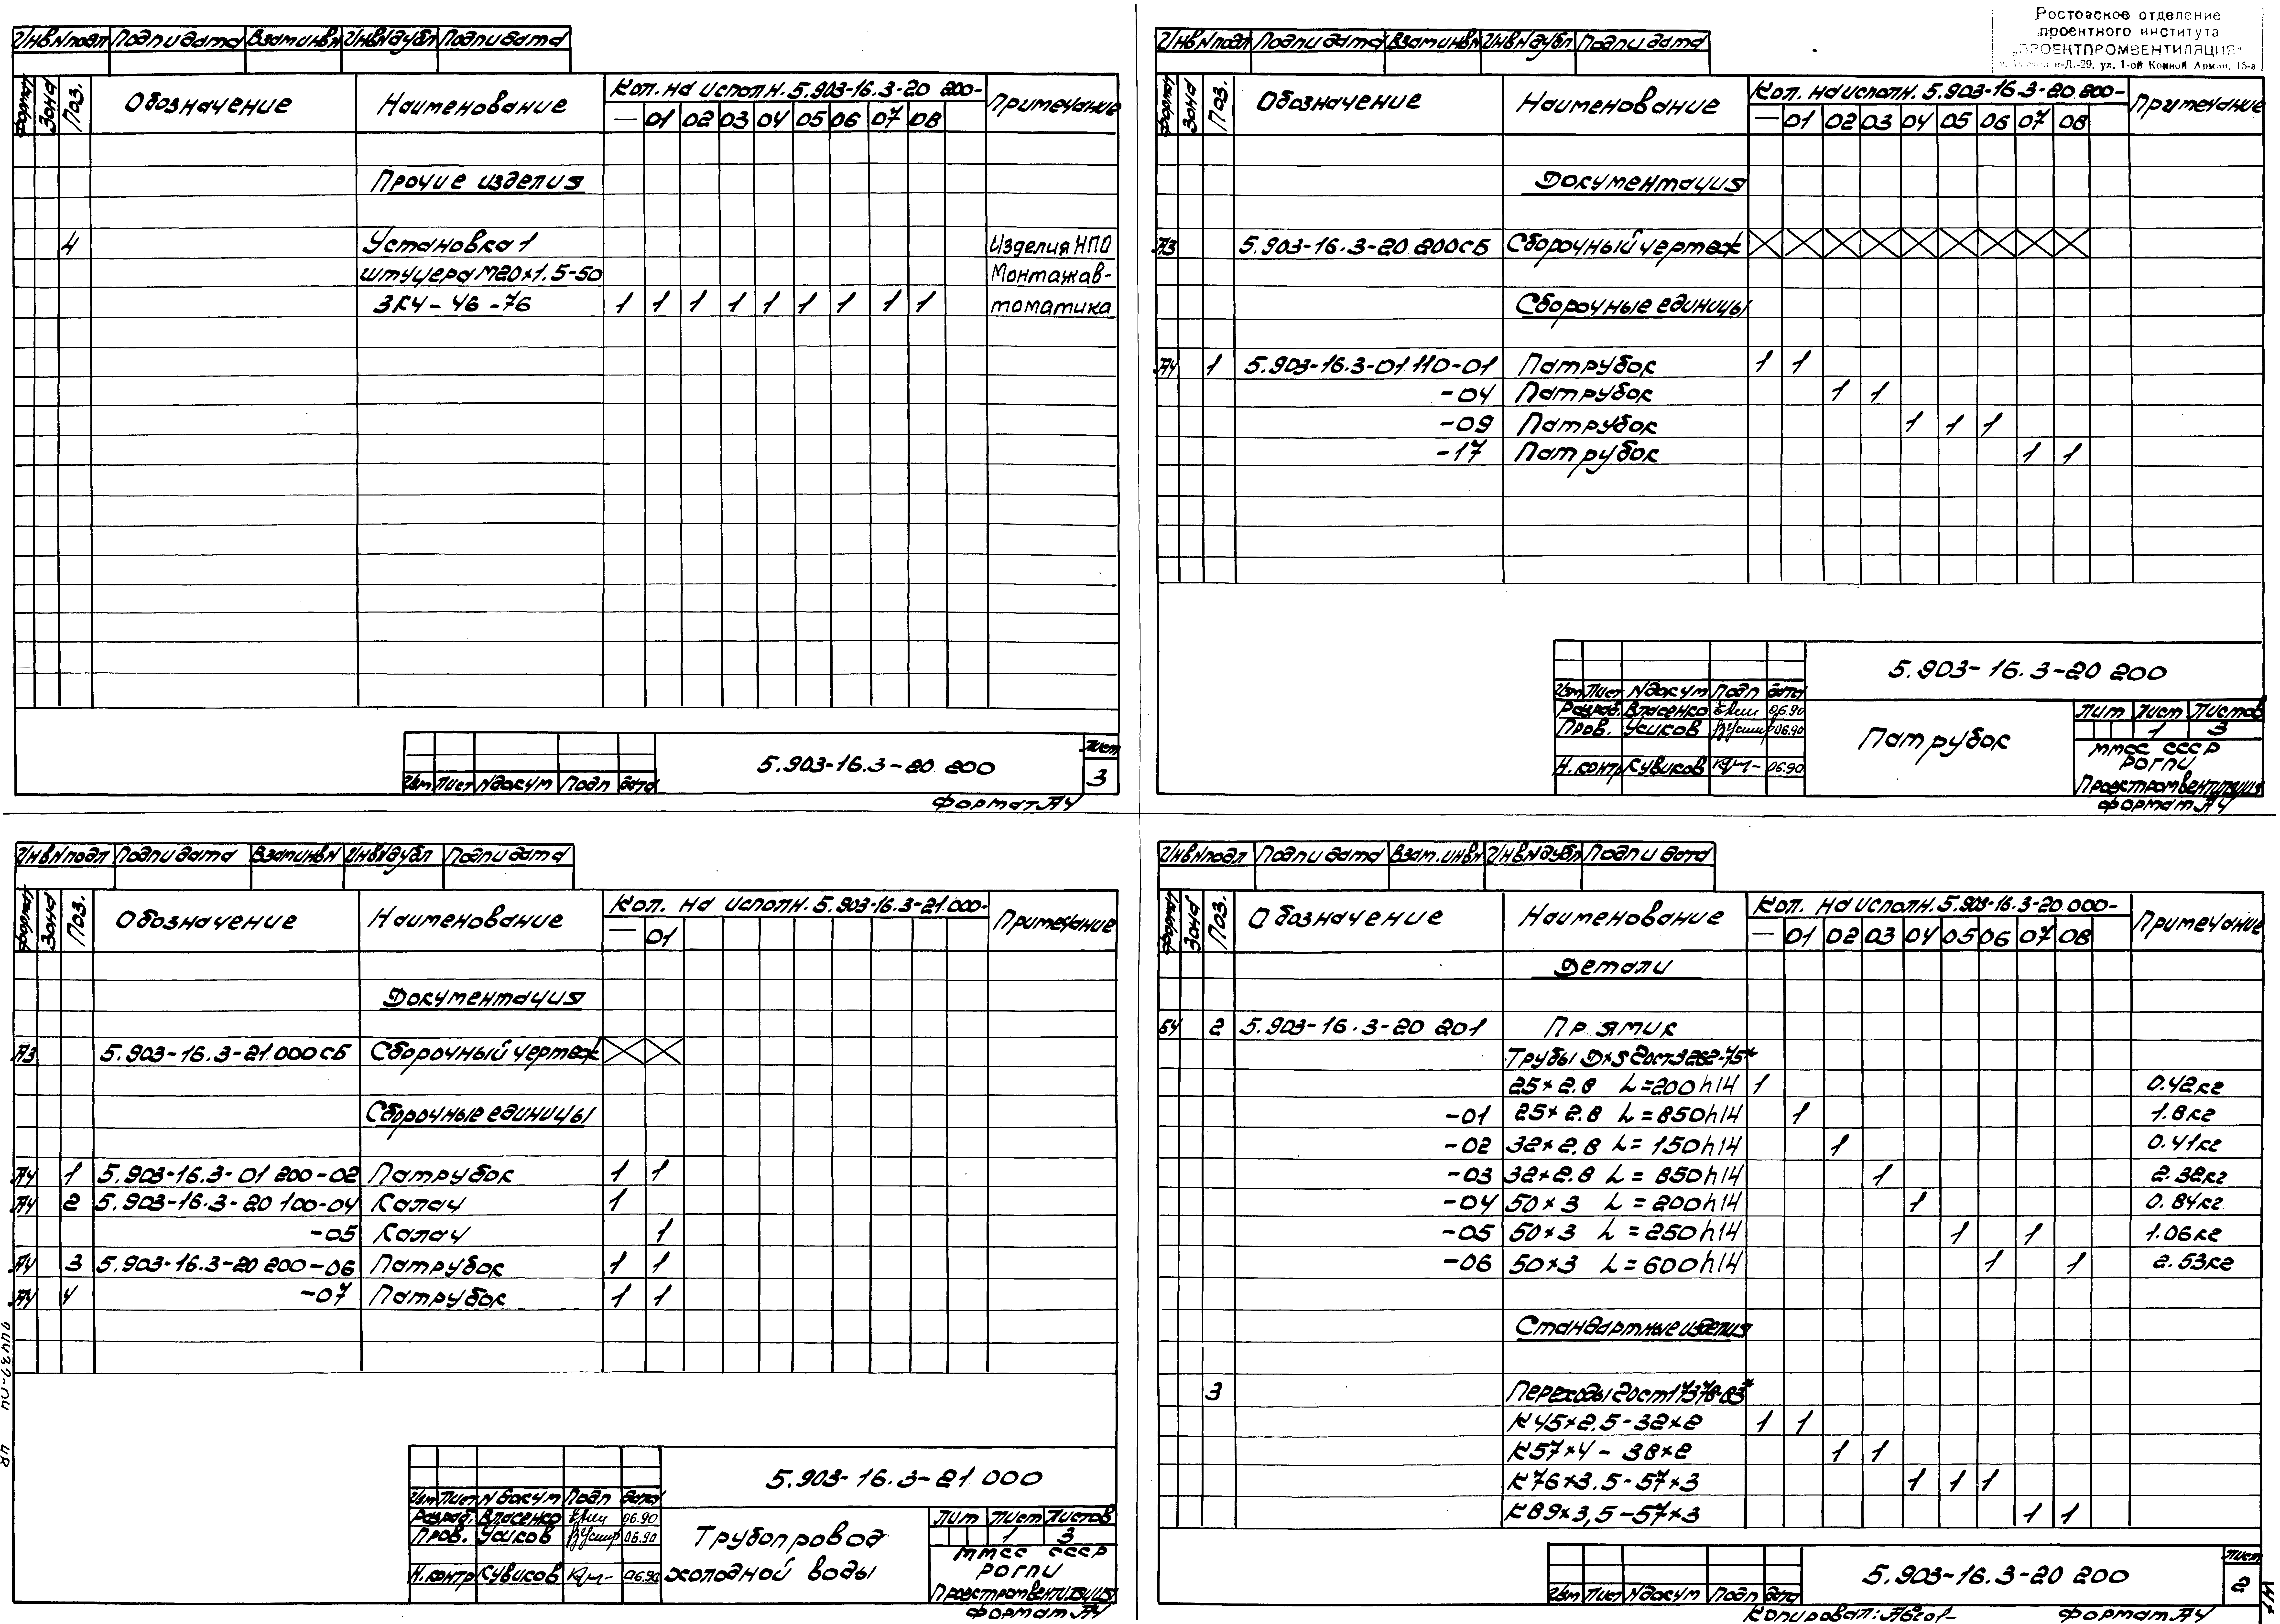 Инв N подл Подп и дата Взам инв N Инв N дубл Подп и дата
Формат Зона Поз. Обозначение Наименование Кол. на исполн. 5.903-16.3-20 200- Примечание
— 01 02 03 04 05 06 07 08
Прочие изделия
4 Установка 1 Изделия НПО
штуцера М20×1.5-50 Монтажав-
ЗК4-46-76 1 1 1 1 1 1 1 1 1 томатика
Изм Лист N докум Подп Дата
5.903-16.3-20 200
Лист
3
Формат А4
Ростовское отделение
проектного института
„ПРОЕКТПРОМВЕНТИЛЯЦИЯ"
ул. 1-ой Конной Армии, 15-а
Инв N подл Подп и дата Взам инв N Инв N дубл Подп и дата
Формат Зона Поз. Обозначение Наименование Кол. на исполн. 5.903-16.3-20 200- Примечание
— 01 02 03 04 05 06 07 08
Документация
А3 5.903-16.3-20 200 СБ Сборочный чертеж
Сборочные единицы
А4 1 5.903-16.3-01 110-01 Патрубок 1 1
-04 Патрубок 1 1
-09 Патрубок 1 1 1
-17 Патрубок 1 1
5.903-16.3-20 200
Изм Лист N докум Подп Дата
Разраб. Власенко 06.90
Пров. Усиков 06.90
Н.контр Кувиков 06.90
Патрубок
Лит Лист Листов
1 3
ММСС СССР
РОГПИ
Проектпромвентиляция
Формат А4
Инв N подл Подп и дата Взам инв N Инв N дубл Подп и дата
Формат Зона Поз. Обозначение Наименование Кол. на исполн. 5.903-16.3-21 000- Примечание
— 01
Документация
А3 5.903-16.3-21 000 СБ Сборочный чертеж
Сборочные единицы
А4 1 5.903-16.3-01 200-02 Патрубок 1 1
А4 2 5.903-16.3-20 100-04 Калач 1
-05 Калач 1
А4 3 5.903-16.3-20 200-06 Патрубок 1 1
А4 4 -07 Патрубок 1 1
5.903-16.3-21 000
Изм Лист N докум Подп Дата
Разраб. Власенко 06.90
Пров. Усиков 06.90
Н.контр Кувиков 06.90
Трубопровод
холодной воды
Лит Лист Листов
1 3
ММСС СССР
РОГПИ
Проектпромвентиляция
Формат А4
Инв N подл Подп и дата Взам. инв N Инв N дубл Подп и дата
Формат Зона Поз. Обозначение Наименование Кол. на исполн. 5.903-16.3-20 000- Примечание
— 01 02 03 04 05 06 07 08
Детали
БЧ 2 5.903-16.3-20 201 Прямик
Трубы D×S Гост 3262-75*
25×2.8 L=200h14 1 0.42кг
-01 25×2.8 L=850h14 1 1.8кг
-02 32×2.8 L=150h14 1 0.41кг
-03 32×2.8 L=850h14 1 2.32кг
-04 50×3 L=200h14 1 0.84кг
-05 50×3 L=250h14 1 1 1.06кг
-06 50×3 L=600h14 1 1 2.53кг
Стандартные изделия
3 Переходы Гост 17378-83*
К45×2.5-32×2 1 1
К57×4-38×2 1 1
К76×3.5-57×3 1 1 1
К89×3,5-57×3 1 1
Изм Лист N докум Подп Дата
5.903-16.3-20 200
Лист
2
Копировал: Формат А4